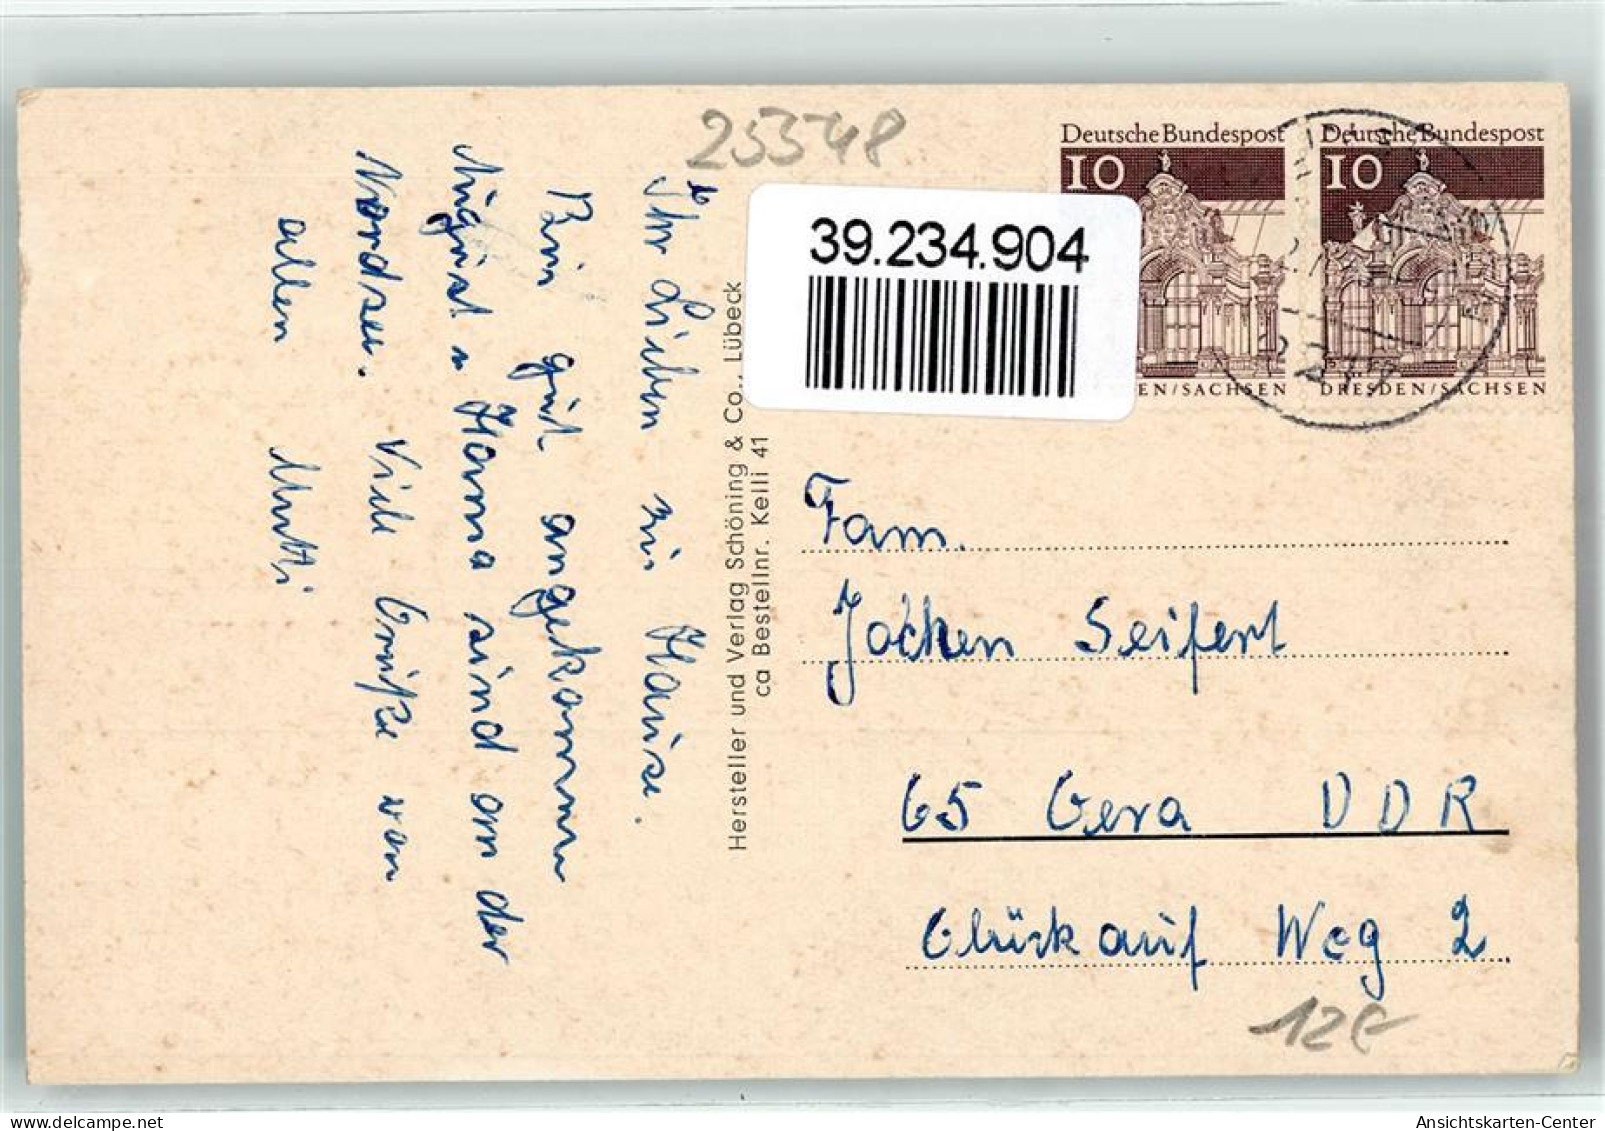 25548
Ihr Lieben zu Hause.
Bin gut angekommen
August u Hanna sind an der
Nordsee. Viele Grüße von
allen Mutti
Hersteller und Verlag Schöning & Co., Lübeck
ca Bestellnr. Kelli 41
39.234.904
Deutsche Bundespost
10
EN/SACHSEN
Deutsche Bundespost
10
DRESDEN/SACHSEN
Fam.
Jochen Seifert
65 Gera DDR
Glückauf Weg 2.
12€
Ansichtskarten-Center